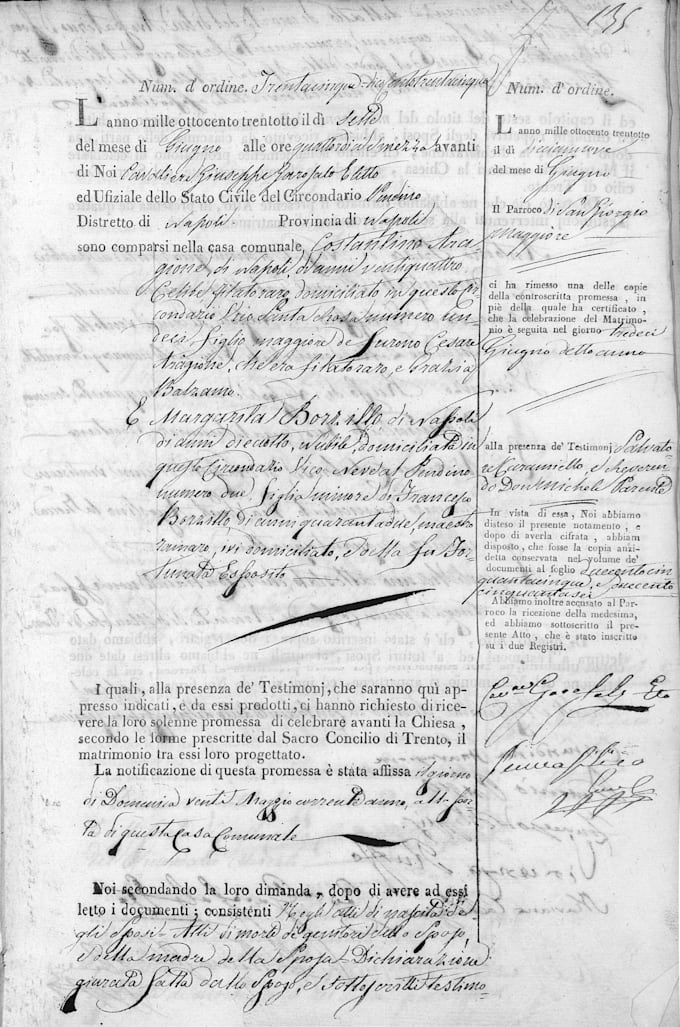 135
Num. d'ordine. Trentacinque = duecentotrentacinque
L'anno mille ottocento trentotto il dì sette
del mese di Giugno alle ore quattordici e mezza avanti
di Noi Cavaliere Giuseppe Garofalo Eletto
ed Ufiziale dello Stato Civile del Circondario Pendino
Distretto di Napoli Provincia di Napoli
sono comparsi nella casa comunale, Costantino Ara-
gione, di Napoli di anni ventiquattro
Celibe filatoraro, domiciliato in questo Cir-
condario numero un-
deci, figlio maggiore de furono Cesare
Aragione, che era filatoraro, e Grazia
Balzamo.
E Margarita Borrillo, di Napoli
di anni dieciotto, nubile, domiciliata in
questo Circondario Vico Neve al Pendino
numero due, figlia minore di Francesco
Borrillo di anni quarantadue, maestro
ramaro, ivi domiciliato, e della fu For-
tunata Esposito
I quali, alla presenza de' Testimonj, che saranno quì ap-
presso indicati, e da essi prodotti, ci hanno richiesto di rice-
vere la loro solenne promessa di celebrare avanti la Chiesa,
secondo le forme prescritte dal Sacro Concilio di Trento, il
matrimonio tra essi loro progettato.
La notificazione di questa promessa è stata affissa il giorno
di Domenica venti Maggio corrente anno, alla por-
ta di questa Casa Comunale
Noi secondando la loro dimanda, dopo di avere ad essi
letto i documenti; consistenti Negli atti di nascita de-
gli sposi - Atti di morte de genitori dello Sposo,
e della madre della Sposa - Dichiarazione
giurata fatta dallo Sposo, e sottoscritti testimo-
Num. d'ordine.
L'anno mille ottocento trentotto
il dì diciannove
del mese di Giugno
Il Parroco di San Giorgio
Maggiore
ci ha rimesso una delle copie
della controscritta promessa, in
piè della quale ha certificato,
che la celebrazione del Matrimo-
nio è seguita nel giorno tredeci
Giugno detto anno
alla presenza de' Testimonj Salvato-
re Caramiello, e Reveren-
do Don Michele Parente
In vista di essa, Noi abbiamo
disteso il presente notamento, e
dopo di averla cifrata, abbiam
disposto, che fosse la copia anzi-
detta conservata nel volume de'
documenti al foglio duecentocin-
quantacinque, e duecento
cinquantasei
Abbiamo inoltre accusato al Par-
roco la ricezione della medesima,
ed abbiamo sottoscritto il pre-
sente Atto, che è stato inscritto
su i due Registri.